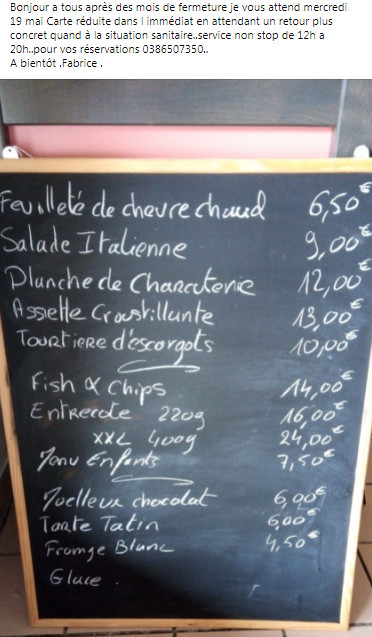 Bonjour a tous après des mois de fermeture je vous attend mercredi
19 mai Carte réduite dans l immédiat en attendant un retour plus
concret quand à la situation sanitaire..service non stop de 12h a
20h..pour vos réservations 0386507350..
A bientôt .Fabrice .
Feuilleté de chevre chaud 6,50€
Salade Italienne 9,00€
Planche de Charcuterie 12,00€
Assiette Croustillante 13,00€
Tourtiere d'escargots 10,00€
Fish & Chips 14,00€
Entrecote 220g 16,00€
XXL 400g 24,00€
Menu Enfants 7,50€
Moelleux chocolat 6,00€
Tarte Tatin 6,00€
Fromge Blanc 4,50€
Glace .